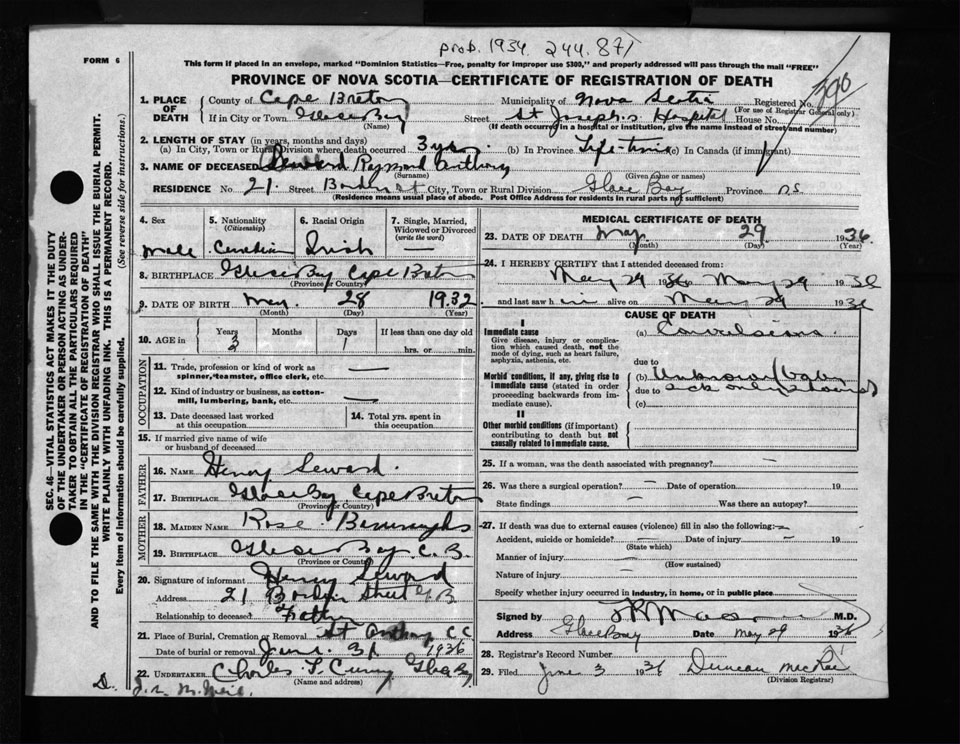 prob. 1934. 244.871
FORM 6
This form if placed in an envelope, marked "Dominion Statistics—Free, penalty for improper use $300," and properly addressed will pass through the mail "FREE"
PROVINCE OF NOVA SCOTIA—CERTIFICATE OF REGISTRATION OF DEATH
390
1. PLACE OF DEATH
County of Cape Breton Municipality of Nova Scotia Registered No.
(For use of Registrar General only)
If in City or Town Glace Bay Street St Joseph's Hospital House No.
(Name) (If death occurred in a hospital or institution, give the name instead of street and number)
2. LENGTH OF STAY (in years, months and days)
(a) In City, Town or Rural Division where death occurred 3 yrs. (b) In Province Life-time (c) In Canada (if immigrant)
3. NAME OF DECEASED Seward Raymond Anthony
(Surname) (Given name or names)
RESIDENCE No. 21. Street St City, Town or Rural Division Glace Bay Province N.S.
(Residence means usual place of abode. Post Office Address for residents in rural parts not sufficient)
4. Sex
5. Nationality (Citizenship)
6. Racial Origin
7. Single, Married, Widowed or Divorced (write the word)
Male Canadian Irish
8. BIRTHPLACE Glace Bay Cape Breton
(Province or County)
9. DATE OF BIRTH May. 28 1932
(Month) (Day) (Year)
10. AGE in
Years Months Days If less than one day old
3 1 hrs. or min.
OCCUPATION
11. Trade, profession or kind of work as spinner, teamster, office clerk, etc. —
12. Kind of industry or business, as cotton-mill, lumbering, bank, etc. —
13. Date deceased last worked at this occupation
14. Total yrs. spent in this occupation
15. If married give name of wife or husband of deceased
FATHER
16. NAME Henry Seward.
17. BIRTHPLACE Glace Bay Cape Breton
(Province or County)
MOTHER
18. MAIDEN NAME Rose Burroughs
19. BIRTHPLACE Glace Bay C. B.
(Province or County)
20. Signature of informant Henry Seward
Address 21 Street G B
Relationship to deceased Father
21. Place of Burial, Cremation or Removal St Anthony C C
Date of burial or removal June. 31 1936
22. UNDERTAKER Charles T. Curry Glace B
(Name and address)
MEDICAL CERTIFICATE OF DEATH
23. DATE OF DEATH May. 29 1936
(Month) (Day) (Year)
24. I HEREBY CERTIFY that I attended deceased from:
May 29 1936 to May 29 1936
and last saw him alive on May 29 1936
CAUSE OF DEATH
I
Immediate cause
Give disease, injury or complication which caused death, not the mode of dying, such as heart failure, asphyxia, asthenia, etc.
(a) Convulsions.
due to
Morbid conditions, if any, giving rise to immediate cause (stated in order proceeding backwards from immediate cause).
(b) Unknown (baby
due to sick only hours)
(c)
II
Other morbid conditions (if important) contributing to death but not causally related to immediate cause.
25. If a woman, was the death associated with pregnancy? —
26. Was there a surgical operation? — Date of operation 19
State findings — Was there an autopsy?
27. If death was due to external causes (violence) fill in also the following:—
Accident, suicide or homicide? — Date of injury — 19
(State which)
Manner of injury —
(How sustained)
Nature of injury —
Specify whether injury occurred in industry, in home, or in public place
Signed by M.D.
Address Glace Bay Date May 29 1936
28. Registrar's Record Number
29. Filed June 3 1936 Duncan McRae
(Division Registrar)
SEC. 46—VITAL STATISTICS ACT MAKES IT THE DUTY
OF THE UNDERTAKER OR PERSON ACTING AS UNDER-
TAKER TO OBTAIN ALL THE PARTICULARS REQUIRED
IN THE "CERTIFICATE OF REGISTRATION OF DEATH"
AND TO FILE THE SAME WITH THE DIVISION REGISTRAR WHO SHALL ISSUE THE BURIAL PERMIT.
WRITE PLAINLY WITH UNFADING INK. THIS IS A PERMANENT RECORD.
Every item of information should be carefully supplied. (See reverse side for instructions.)